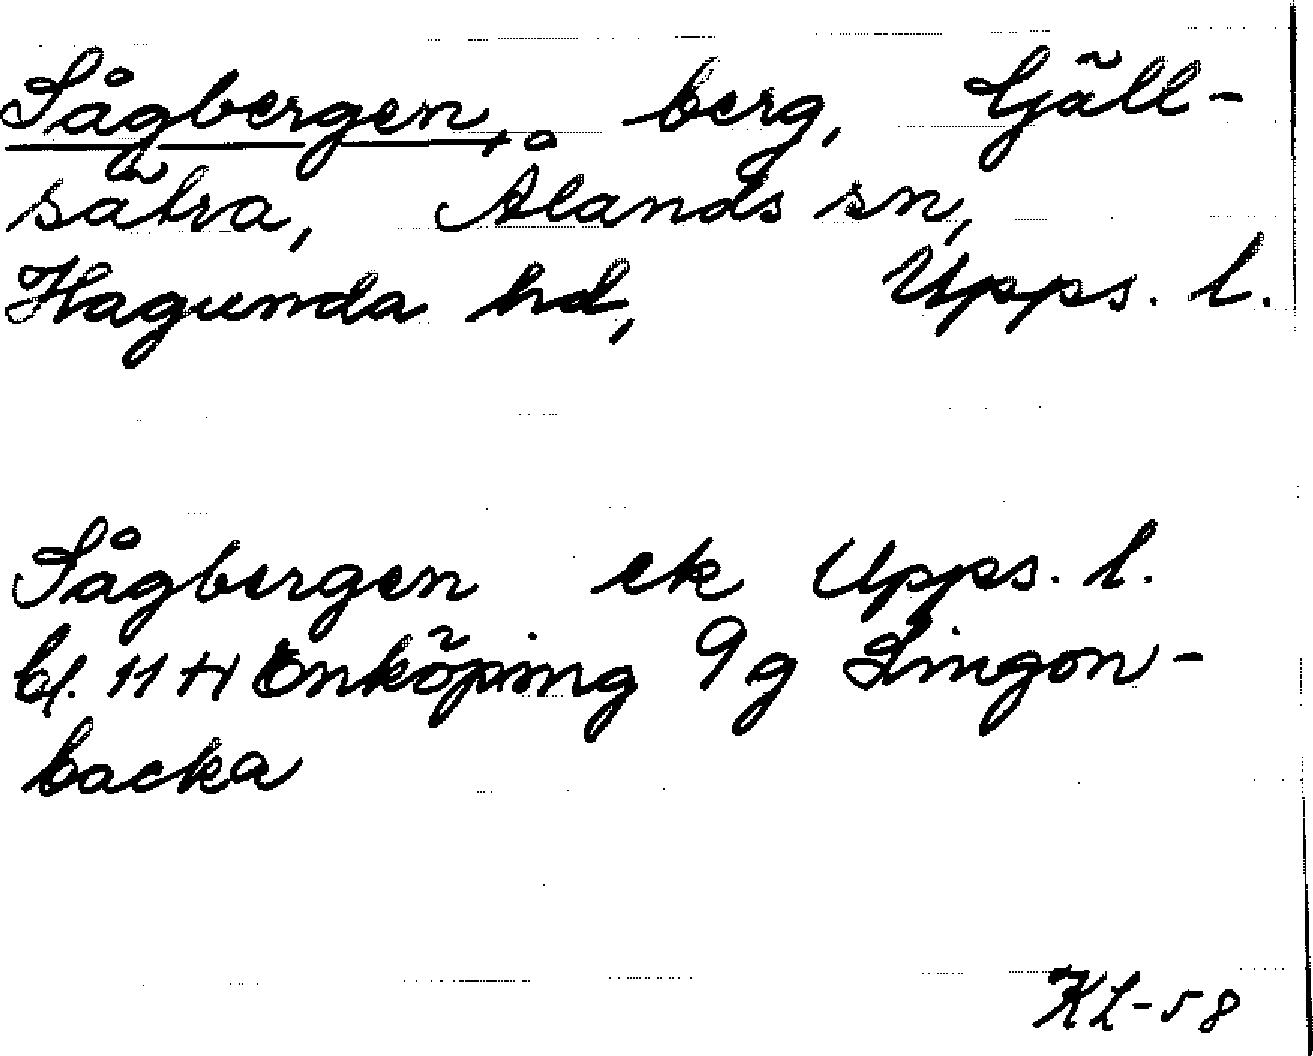 Sågbergen, berg, Gjäll-
sätra, Ålands sn,
Hagunda hd, Upps. l.
Sågbergen ek Upps. l.
bl. 11 H Enköping 9g Lingon-
backa
KL-58